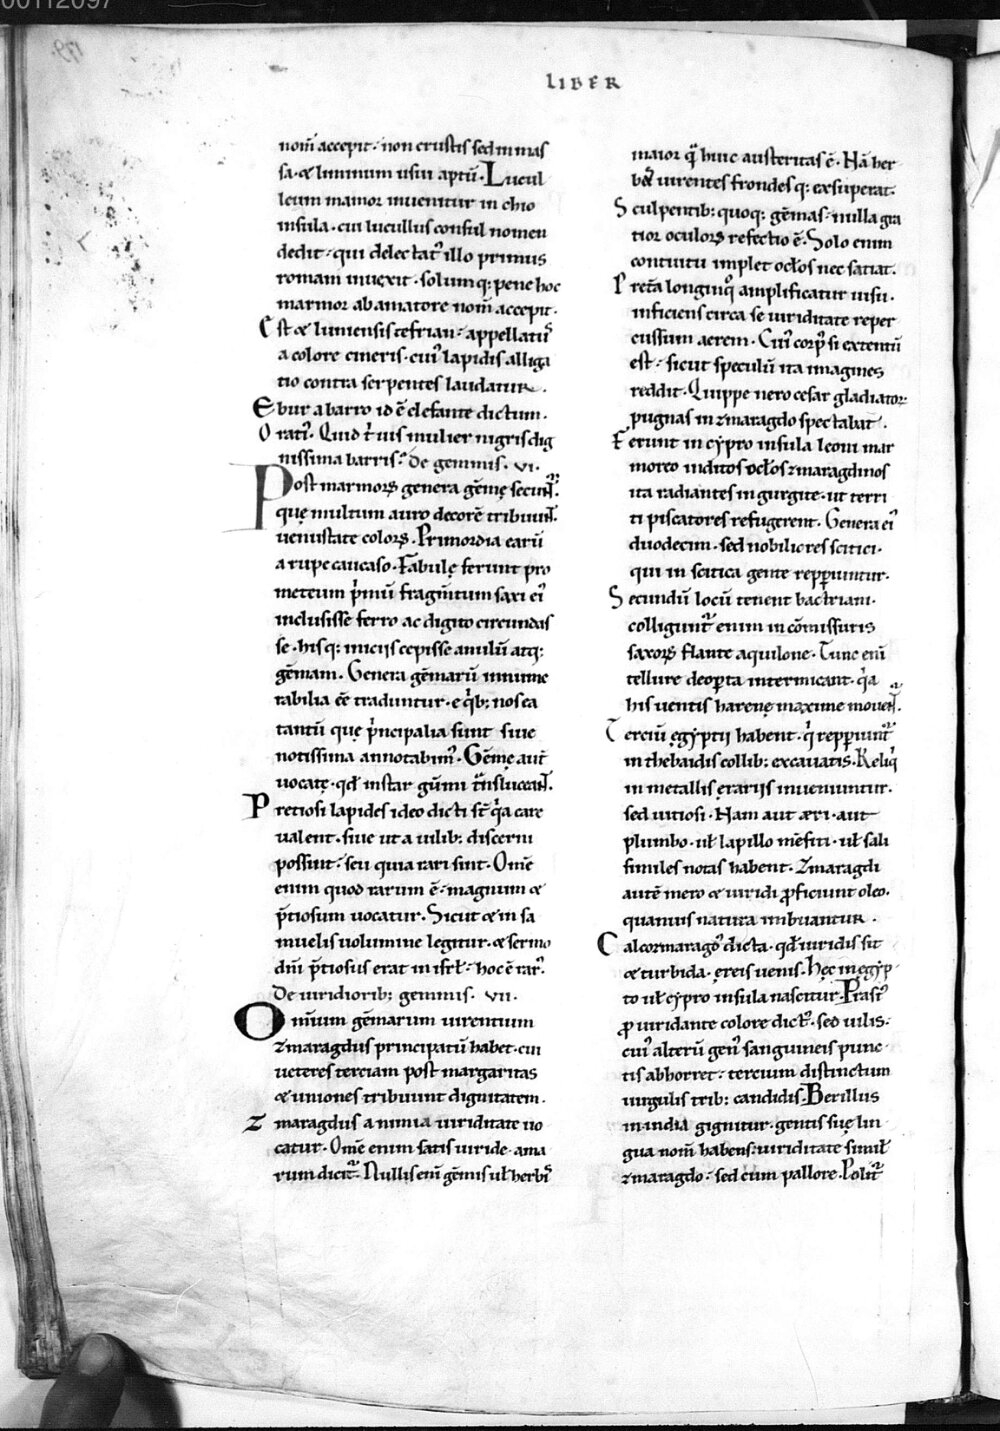 00112097
LIBER
nom̄ accepit · non crustis sed in mas
sa · & liminum usui aptū · Lucul
leum marmor inuenitur in chio
insula · cui lucullus consul nomen
dedit · qui delectat᷑ illo primus
romam inuexit · solumq: pene hoc
marmor ab amatore nom̄ accepit ·
Est & luniensis tefrian · appellatus
a colore cineris · cui᷒ lapidis alliga
tio contra serpentes laudatur ·
Ebur a barro id ē elefante dictum ·
Orati᷒ · Quid t̄ uis mulier nigris dig
nissima barris · De gemmis · vi ·
Post marmorꝝ genera gēmę secunt᷑ ·
quę multum auro decorē tribuunt ·
uenustate colorꝝ · Primordia earū
a rupe caucaso · Fabulę ferunt pro
meteum p̄mū fragm̄tum saxi ei᷒
inclusisse ferro ac digito circundas
se · hisq: iniciis cepisse anulū atq:
gēmam · Genera gēmarū innume
rabilia eē traduntur · e q̇b; nos ea
tantū quę ṗncipalia sunt siue
notissima annotabim᷒ · Gēmę aut̄
uocatę · qđ instar gūmi t̄nsluceant ·
Pretiosi lapides ideo dicti st̄ q̇a care
ualent · siue ut a uilib: discerni
possint · seu quia rari sint · Om̄e
enim quod rarum ē · magnum &
p̄tiosum uocatur · Sicut & in sa
muelis uolumine legitur · & sermo
dn̄i p̄tiosus erat in isrł · hoc ē rar᷒ ·
De uiridiorib: gemmis · vii ·
Omnium gēmarum uirentium
zmaragdus principatū habet · cui
ueteres terciam post margaritas
& uniones tribuunt dignitatem ·
Zmaragdus a nimia uiriditate uo
catur · Om̄e enim satis uiride · ama
rum dicit᷑ · Nullis eni᷒ gēmis uł herbis
maior q̄ huic austeritas ē · Nā her
bas uirentes frondesq: exsuperat ·
Sculpentib: quoq: gēmas · nulla gra
tior oculorꝝ refectio ē · Solo enim
contuitu implet ocłos nec satiat ·
Pret̄a longinq᷒ amplificatur uisu ·
inficiens circa se uiriditate reper
cussum aerem · Cui᷒ corp᷒ si extentū
est · sicut speculū ita imagines
reddit · Quippe nero cesar gladiatorꝝ
pugnas in zmaragdo spectabat ·
Ferunt in cypro insula leoni mar
moreo inditos ocłos zmaragdinos
ita radiantes in gurgite · ut terri
ti piscatores refugerent · Genera ei᷒
duodecim · sed nobiliores scitici ·
qui in scitica gente repperiuntur ·
Secundū locū tenent bactriani ·
colligunt᷑ enim in cōmissuris
saxorꝝ flante aquilone · Tunc eni᷒
tellure deop̱ta intermicant · q̇a
his uentis harenę maxime mouent᷑ ·
Terciū ęgyptii habent · q̇ repperiunt᷑
in thebaidis collib: excauatis · Reliq̇
in metallis ęrariis inueniuntur ·
sed uitiosi · Nam aut æri · aut
plumbo · uł lapillo mēfiti · uł sali
similes notas habent · Zmaragdi
autē mero & uiridi proficiunt oleo ·
quamuis natura imbuantur ·
Calcosmaragd᷒ dicta · qđ uiridis sit
& turbida · ęreis uenis · Hęc in ęgyp
to uł cypro insula nascitur · Prasi᷒
pro uiridante colore dict᷒ · sed uilis ·
cui᷒ alterū gen᷒ sanguineis punc
tis abhorret · tercium distinctum
uirgulis trib: candidis · Berillus
in india gignitur · gentis suę lin
gua nom̄ habens · uiriditate similis
zmaragdo · sed cum pallore · Polit᷑